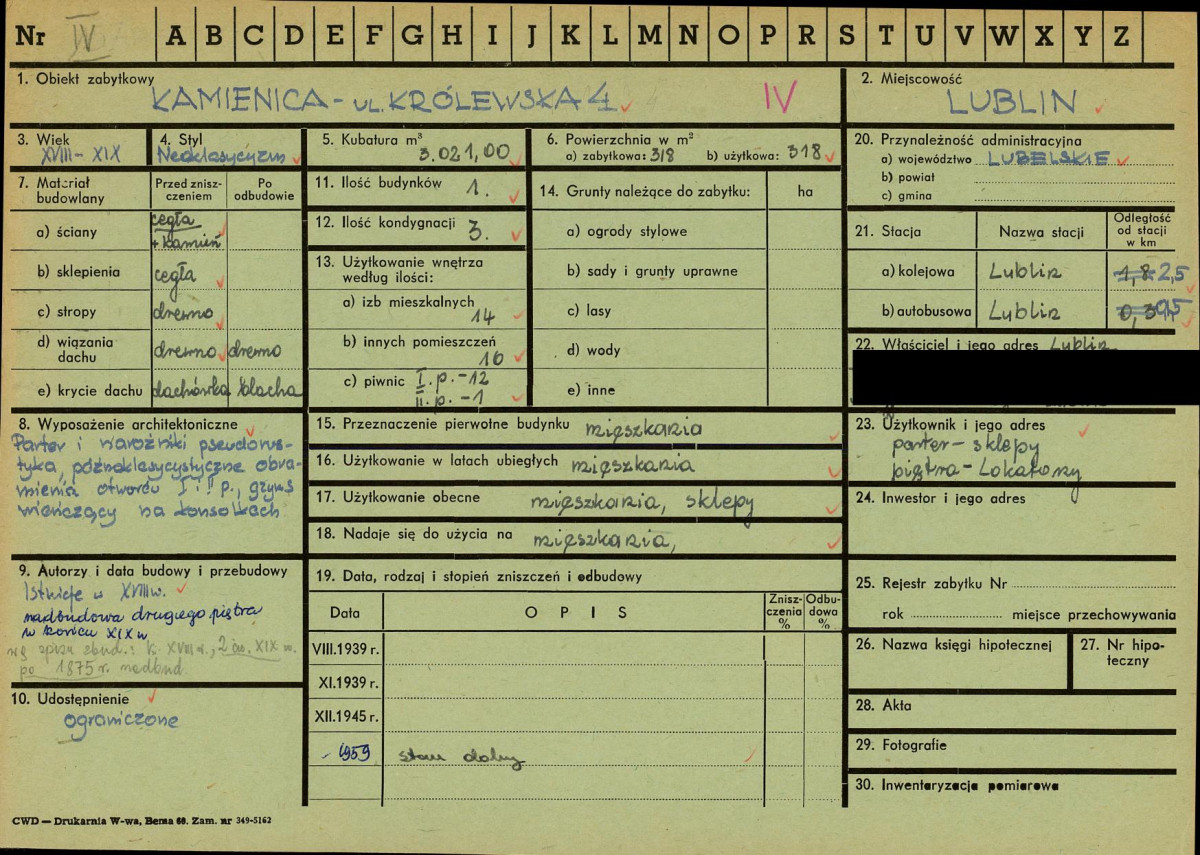 Nr IV A B C D E F G H I J K L M N O P R S T U V W X Y Z
1. Obiekt zabytkowy
KAMIENICA - UL. KRÓLEWSKA 4 IV
2. Miejscowość
LUBLIN
3. Wiek
XVIII - XIX
4. Styl
Neoklasycyzm
5. Kubatura m³
3.021,00
6. Powierzchnia w m²
a) zabytkowa: 318 b) użytkowa: 318
20. Przynależność administracyjna
a) województwo LUBELSKIE
b) powiat
c) gmina
7. Materiał budowlany
Przed zniszczeniem
Po odbudowie
a) ściany cegła
+ kamień
b) sklepienia cegła
c) stropy drewno
d) wiązania dachu drewno drewno
e) krycie dachu dachówka blacha
11. Ilość budynków 1.
12. Ilość kondygnacji 3.
13. Użytkowanie wnętrza
według ilości:
a) izb mieszkalnych
14
b) innych pomieszczeń
10
c) piwnic I.p. - 12
II.p. - 1
14. Grunty należące do zabytku: ha
a) ogrody stylowe
b) sady i grunty uprawne
c) lasy
d) wody
e) inne
21. Stacja Nazwa stacji Odległość od stacji w km
a) kolejowa Lublin 1,8 2,5
b) autobusowa Lublin 0,3 0,5
22. Właściciel i jego adres Lublin
8. Wyposażenie architektoniczne
Parter i narożniki pseudorus-
tyka, późnoklasycystyczne obra-
mienia otworów I i II p., gzyms
wieńczący na konsolkach
15. Przeznaczenie pierwotne budynku mieszkania
16. Użytkowanie w latach ubiegłych mieszkania
17. Użytkowanie obecne mieszkania, sklepy
18. Nadaje się do użycia na mieszkania,
23. Użytkownik i jego adres
parter - sklepy
piętra - Lokatorzy
24. Inwestor i jego adres
9. Autorzy i data budowy i przebudowy
Istnieje w XVIII w.
nadbudowa drugiego piętra
w końcu XIX w
wg spisu zbud.: k. XVIII w., 2 ćw. XIX w.
po 1875 r. nadbud.
10. Udostępnienie
ograniczone
19. Data, rodzaj i stopień zniszczeń i odbudowy
Data OPIS Zniszczenia % Odbudowa %
VIII.1939 r.
XI.1939 r.
XII.1945 r.
1959 stan dobry
25. Rejestr zabytku Nr
rok miejsce przechowywania
26. Nazwa księgi hipotecznej
27. Nr hipoteczny
28. Akta
29. Fotografie
30. Inwentaryzacja pomiarowa
CWD — Drukarnia W-wa, Bema 60. Zam. nr 349-5162